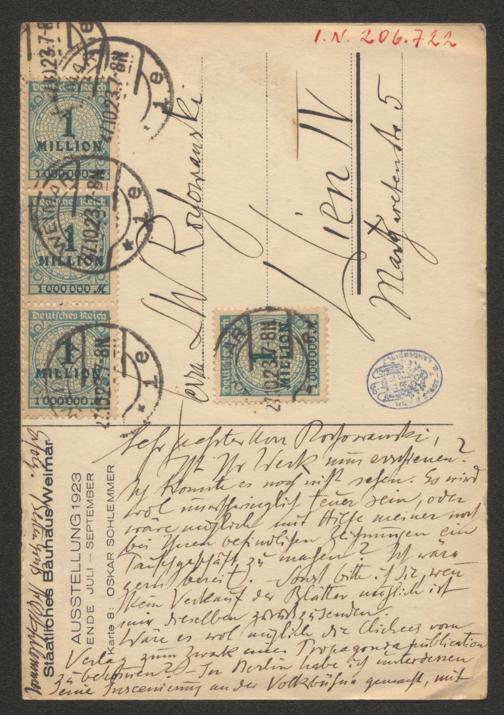 I.N. 206.722
Herrn L W Rochowanski
Wien IV
Margaretenstr 5
Deutsches Reich
1
MILLION
1000000 M
1
MILLION
1000000 M
Deutsches Reich
1
MILLION
1000000 M
1
MILLION
1000000 M
WEIMAR
27.10.23.7-8N
* 1e
Staatliches Bauhaus Weimar
AUSSTELLUNG 1923
ENDE JULI — SEPTEMBER
Karte 8: OSKAR SCHLEMMER
Sehr geehrter Herr Rochowanski,
Ist Ihr Werk nun erschienen?
Ich konnte es noch nicht sehen. Es wird
wol unerschwinglich teuer sein, oder
wäre möglich mit Hilfe meiner noch
bei Ihnen befindlichen Zeichnungen ein
Tauschgeschäft zu machen? Ich wäre
gern bereit. Sonst bitte ich Sie, wenn
kein Verkauf der Blätter möglich ist
mir dieselben zurückzusenden.
Wäre es wol möglich die Clichees vom
Verlag zum Zweck einer Propagandapublikation
zu bekommen? In Berlin habe ich unterdessen
eine Inscenierung an der Volksbühne gemacht, mit
Erfolg.